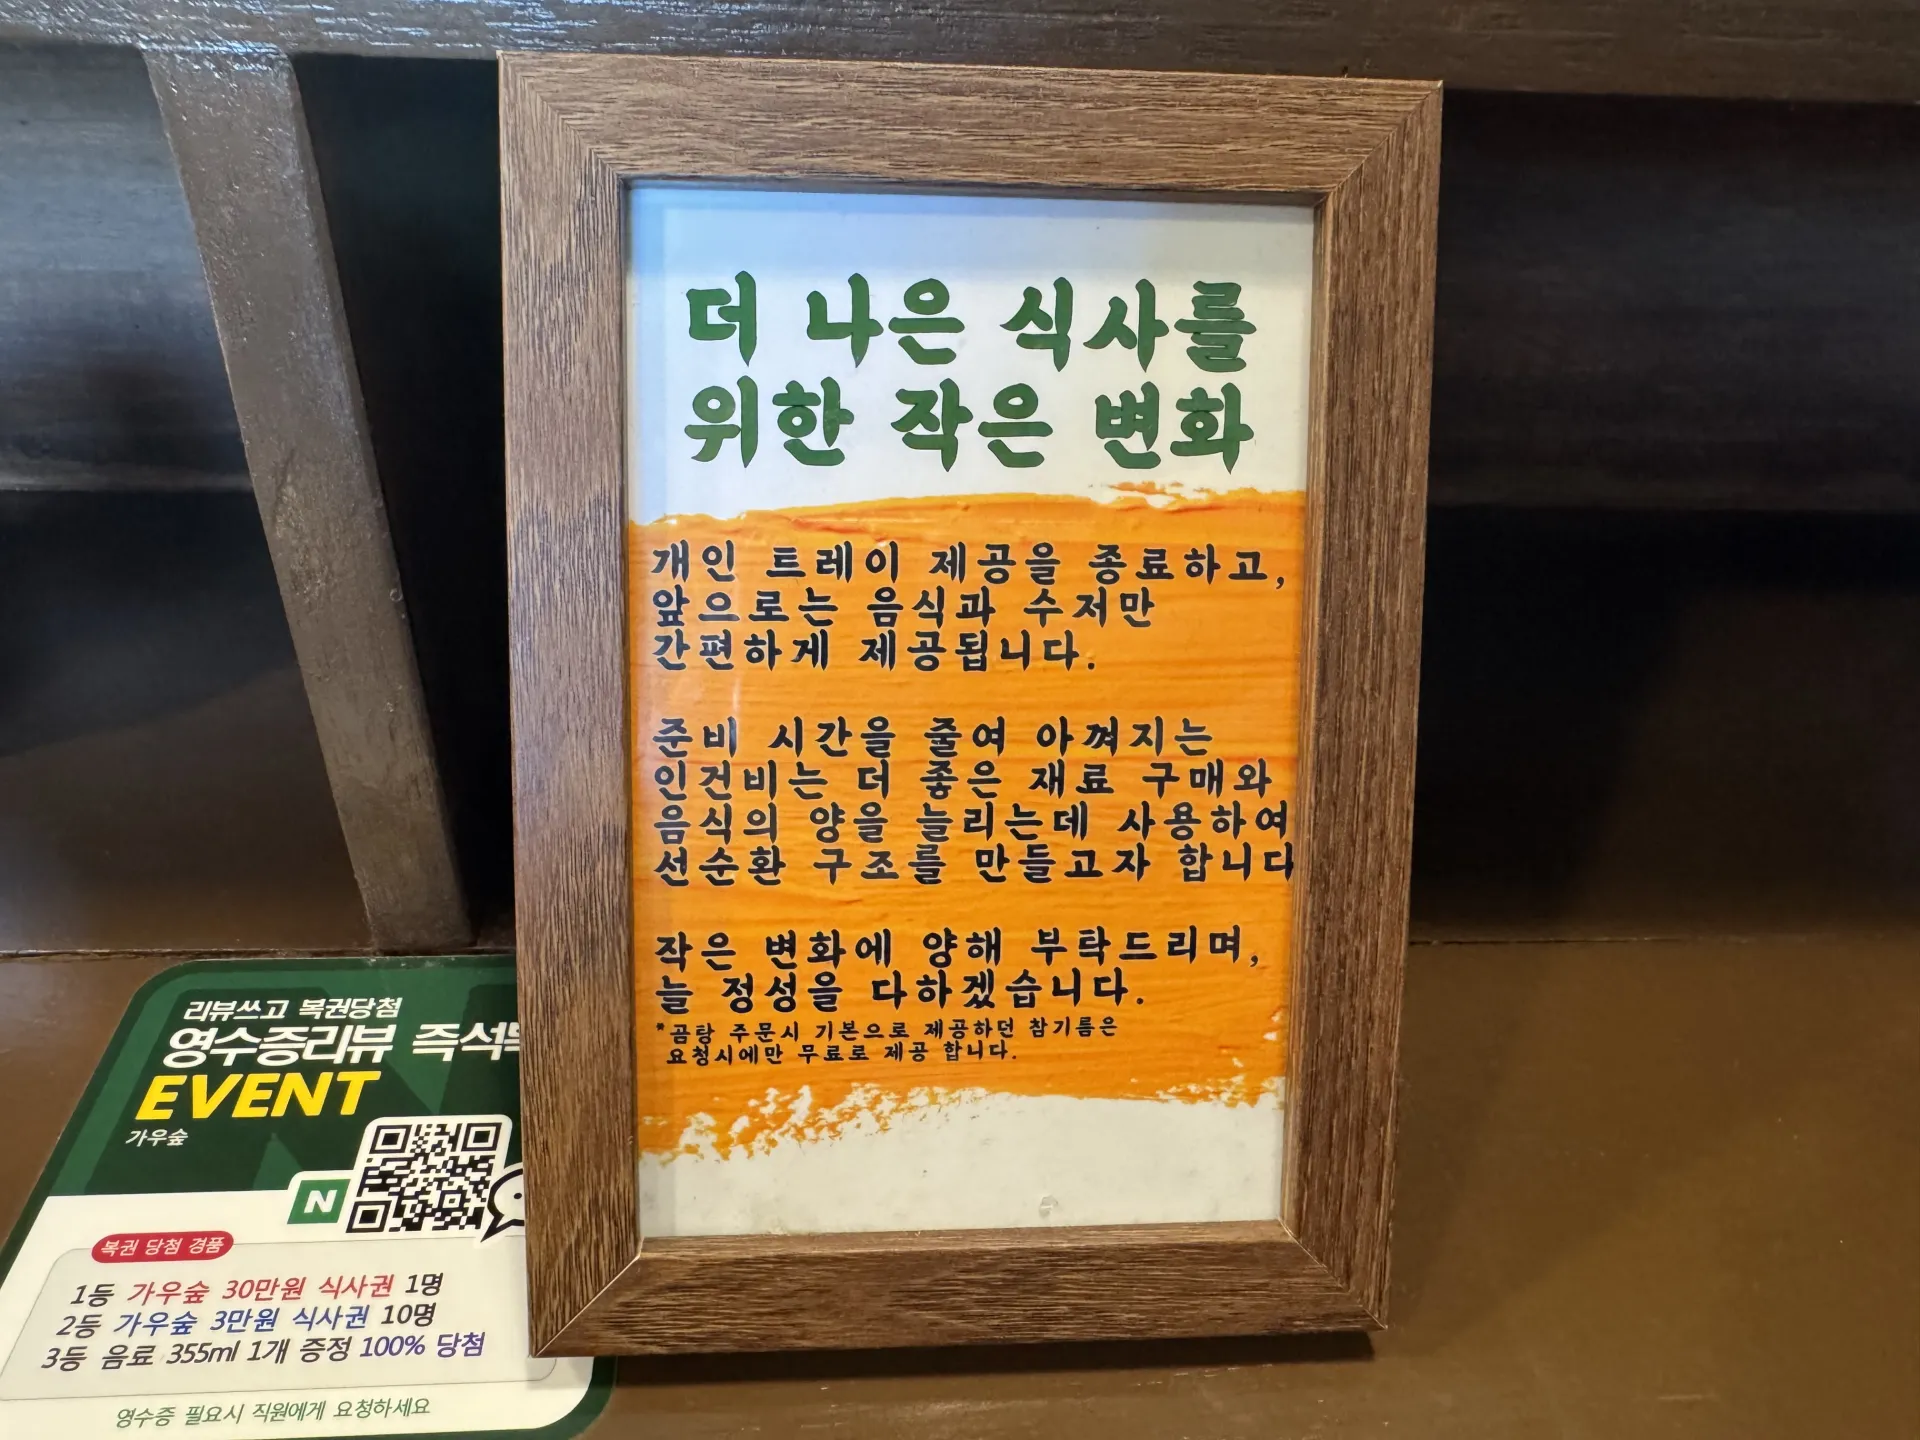 더 나은 식사를
위한 작은 변화
개인 트레이 제공을 종료하고,
앞으로는 음식과 수저만
간편하게 제공됩니다.
준비 시간을 줄여 아껴지는
인건비는 더 좋은 재료 구매와
음식의 양을 늘리는데 사용하여
선순환 구조를 만들고자 합니다
작은 변화에 양해 부탁드리며,
늘 정성을 다하겠습니다.
*곰탕 주문시 기본으로 제공하던 참기름은
요청시에만 무료로 제공 합니다.
리뷰쓰고 복권당첨
영수증리뷰 즉석
EVENT
가우숲
N
복권 당첨 경품
1등 가우숲 30만원 식사권 1명
2등 가우숲 3만원 식사권 10명
3등 음료 355ml 1개 증정 100% 당첨
영수증 필요시 직원에게 요청하세요